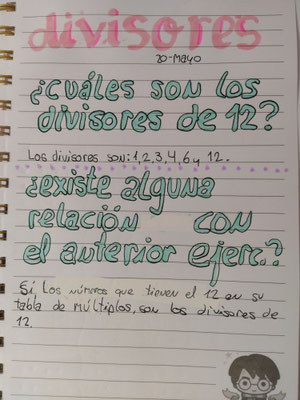 divisores
20-Mayo
¿cuáles son los
divisores de 12?
Los divisores son: 1, 2, 3, 4, 6 y 12.
¿existe alguna
relación con
el anterior ejerc.?
Sí. Los números que tienen el 12 en su
tabla de múltiplos, son los divisores de
12.